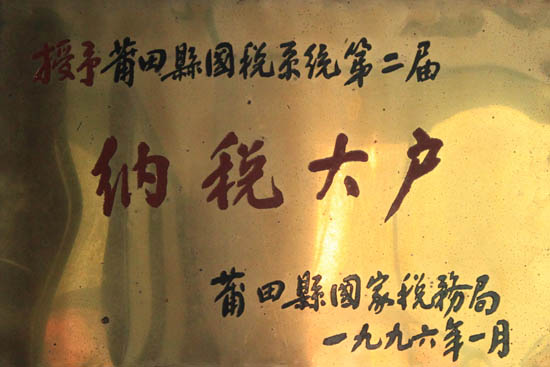 授予莆田縣國税系统第二届
纳税大户
莆田縣國家税務局
一九九六年一月